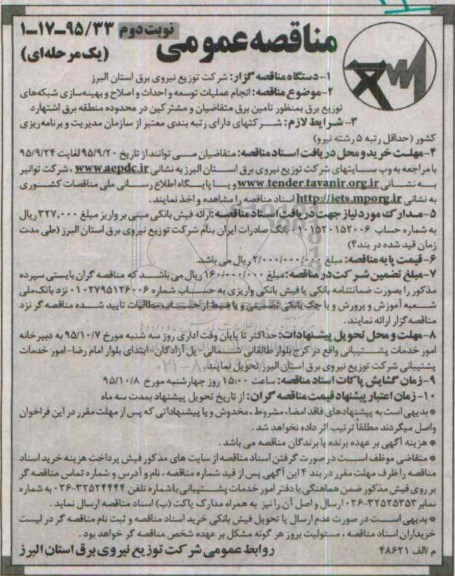 مناقصه عمومی
نوبت دوم
۱-۱۷-۹۵/۳۳
(یک مرحله‌ای)
۱- دستگاه مناقصه گزار: شرکت توزیع نیروی برق استان البرز
۲- موضوع مناقصه: انجام عملیات توسعه و احداث و اصلاح و بهینه‌سازی شبکه‌های
توزیع برق بمنظور تامین برق متقاضیان و مشترکین در محدوده منطقه برق اشتهارد
۳- شرایط لازم: شرکتهای دارای رتبه بندی معتبر از سازمان مدیریت و برنامه‌ریزی
کشور (حداقل رتبه ۵ رشته نیرو)
۴- مهلت خرید و محل دریافت اسناد مناقصه: متقاضیان می توانند از تاریخ ۹۵/۹/۲۰ لغایت ۹۵/۹/۲۴
با مراجعه به وب سایتهای شرکت توزیع نیروی برق استان البرز به نشانی www.aepdc.ir، شرکت توانیر
به نشانی www.tender.tavanir.org.ir و یا پایگاه اطلاع رسانی ملی مناقصات کشوری
به نشانی http://iets.mporg.ir اسناد مناقصه را مشاهده و اخذ نمایند.
۵- مدارک مورد نیاز جهت دریافت اسناد مناقصه: ارائه فیش بانکی مبنی بر واریز مبلغ ۲۲۷,۰۰۰ ریال
به شماره حساب ۰۹۰۱۵۲۰۱۵۲۰۰۶ بانک صادرات ایران بنام شرکت توزیع نیروی برق استان البرز (طی مدت
زمان قید شده در بند ۴)
۶- قیمت پایه مناقصه: مبلغ ۲/۰۰۰/۰۰۰/۰۰۰ ریال می باشد
۷- مبلغ تضمین شرکت در مناقصه: مبلغ ۱۶۰/۰۰۰/۰۰۰ ریال می باشد که مناقصه گران بایستی سپرده
مذکور را بصورت ضمانتنامه بانکی یا فیش بانکی واریزی به حساب شماره ۰۱۰۲۷۹۵۱۲۶۰۰۶ نزد بانک ملی
شعبه آموزش و پرورش و یا چک بانکی تضمینی و یا ضبط از حساب مطالبات تایید شده مناقصه گر نزد
مناقصه گزار ارائه نمایند.
۸- مهلت و محل تحویل پیشنهادات: حداکثر تا پایان وقت اداری روز سه شنبه مورخ ۹۵/۱۰/۷ به دبیرخانه
امور خدمات پشتیبانی واقع در کرج بلوار طالقانی شمالی - پل آزادگان - ابتدای بلوار امام رضا - امور خدمات
پشتیبانی شرکت توزیع نیروی برق استان البرز تحویل نمایند.
۹- زمان گشایش پاکات اسناد مناقصه: ساعت ۱۵:۰۰ روز چهارشنبه مورخ ۹۵/۱۰/۸
۱۰- زمان اعتبار پیشنهاد قیمت مناقصه گران: از تاریخ تحویل پیشنهاد بمدت سه ماه
* بدیهی است به پیشنهادهای فاقد امضا، مشروط، مخدوش و یا پیشنهاداتی که پس از مهلت مقرر در این فراخوان
واصل میگردند مطلقا ترتیب اثر داده نخواهد شد.
* هزینه آگهی بر عهده برنده یا برندگان مناقصه می باشد.
* متقاضی موظف است در صورت گرفتن اسناد مناقصه از سایت های مذکور فیش پرداخت هزینه خرید اسناد
مناقصه را ظرف مهلت مقرر در بند ۴ این آگهی پس از قید شماره مناقصه، نام و آدرس و شماره تماس مناقصه گر
بر روی فیش مذکور ضمن هماهنگی با دفتر امور خدمات پشتیبانی با شماره تلفن ۳۲۵۲۴۴۴۴-۰۲۶ به شماره
نمابر ۳۲۵۲۵۳۵۳-۰۲۶ ارسال و اصل آن را نیز به همراه مدارک پاکت (ب) اسناد مناقصه ارسال نماید.
* بدیهی است در صورت عدم ارسال یا تحویل فیش بانکی خرید اسناد مناقصه و ثبت نام مناقصه گر در لیست
خریداران اسناد مناقصه، مسئولیت بروز هر گونه مشکل بر عهده شخص مناقصه گر خواهد بود.
م الف ۴۸۶۲۱
روابط عمومی شرکت توزیع نیروی برق استان البرز